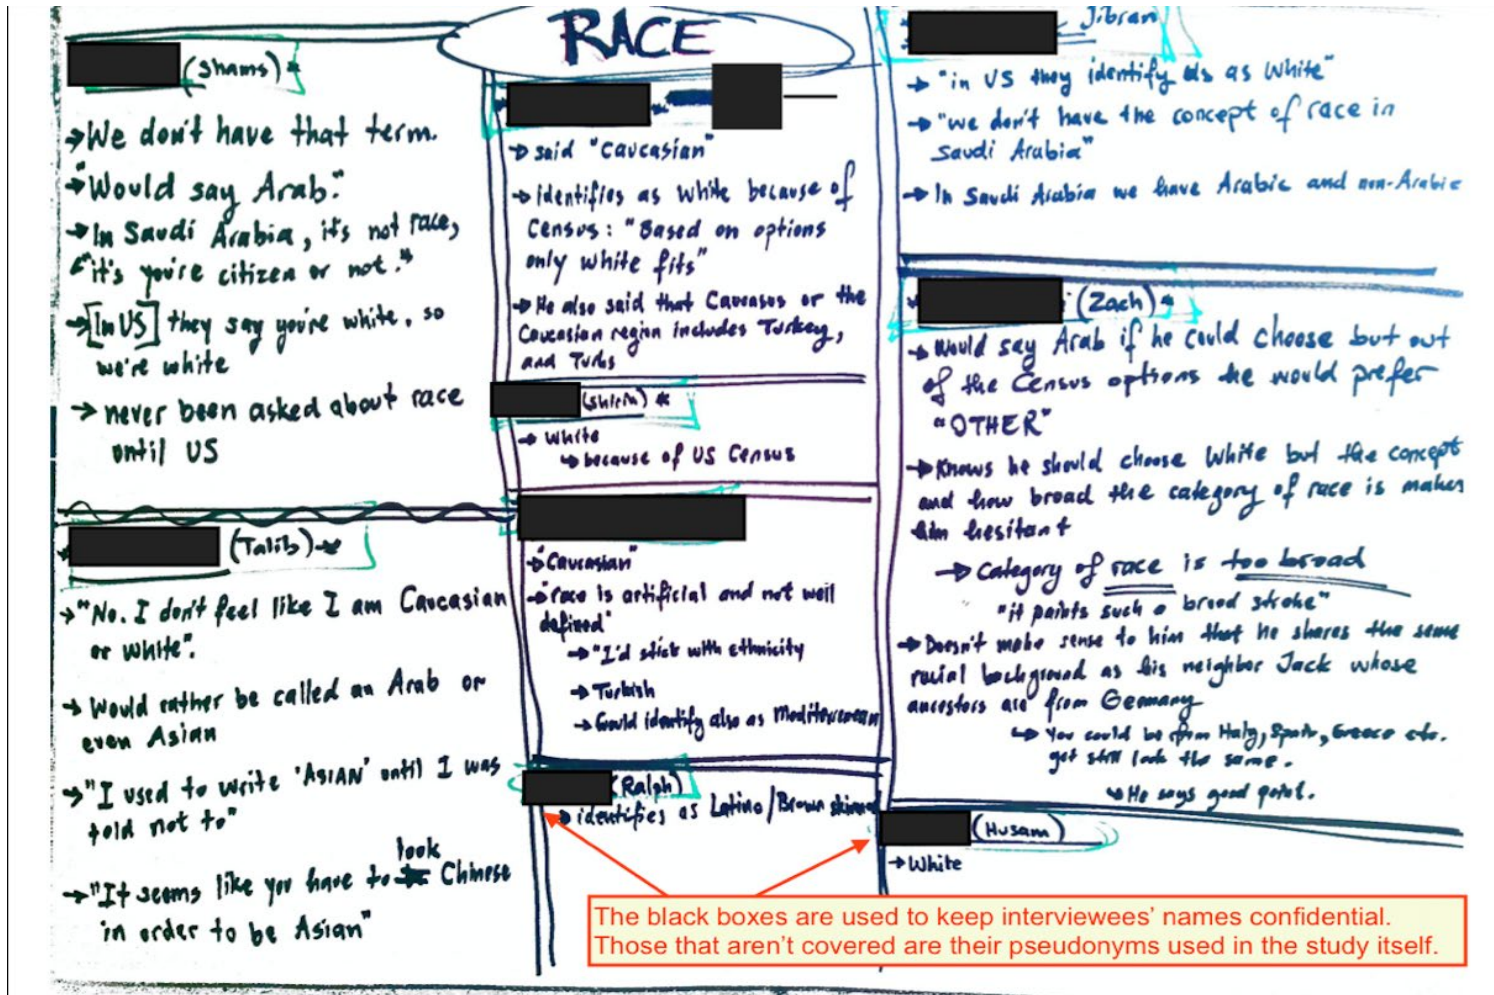 RACE
(Shams)
→ We don't have that term.
→ "Would say Arab."
→ In Saudi Arabia, it's not race,
"it's you're citizen or not."
→ [In US] they say you're white, so
we're white
→ never been asked about race
until US
(Talib)
→ "No. I don't feel like I am Caucasian
or white".
→ Would rather be called an Arab or
even Asian
→ "I used to write 'ASIAN' until I was
told not to"
→ "It seems like you have to look Chinese
in order to be Asian"
→ said "Caucasian"
→ identifies as white because of
Census: "Based on options
only white fits"
→ He also said that Caucasus or the
Caucasian region includes Turkey,
and Turks
(Shirin)
→ White
↳ because of US Census
→ "Caucasian"
→ "race is artificial and not well
defined"
→ "I'd stick with ethnicity
→ Turkish
→ Could identify also as Mediterranean
(Ralph)
→ identifies as Latino/Brown skinned
Jibran
→ "in US they identify us as White"
→ "we don't have the concept of race in
Saudi Arabia"
→ In Saudi Arabia we have Arabic and non-Arabic
(Zach)
→ Would say Arab if he could choose but out
of the Census options he would prefer
"OTHER"
→ Knows he should choose White but the concept
and how broad the category of race is makes
him hesitant
→ Category of race is too broad
"it paints such a broad stroke"
→ Doesn't make sense to him that he shares the same
racial background as his neighbor Jack whose
ancestors are from Germany
↳ You could be from Italy, Spain, Greece etc.
yet still look the same.
↳ He says good point.
(Husam)
→ White
The black boxes are used to keep interviewees' names confidential.
Those that aren't covered are their pseudonyms used in the study itself.